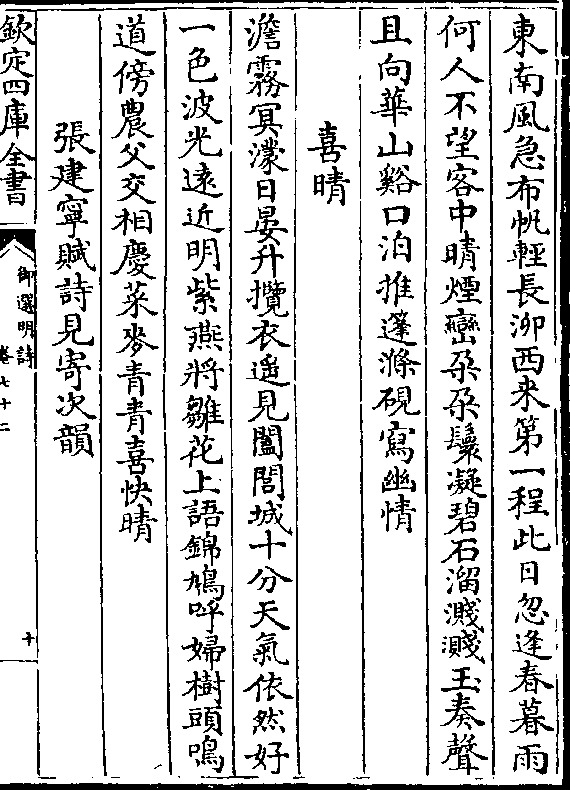 東南風急布帆輕長泖西来第一程此日忽逢春暮雨
何人不望客中晴煙巒朵朵鬟凝碧石溜濺濺玉奏聲
且向華山谿口泊推篷滌硯寫幽情
喜晴
澹霧冥濛日晏升攬衣遙見闔閭城十分天氣依然好
一色波光遠近明紫燕將雛花上語錦鳩呼婦樹頭鳴
道傍農父交相慶菜麥青青喜快晴
張建寧賦詩見寄次韻
欽定四庫全書
御選明詩
卷七十二
十